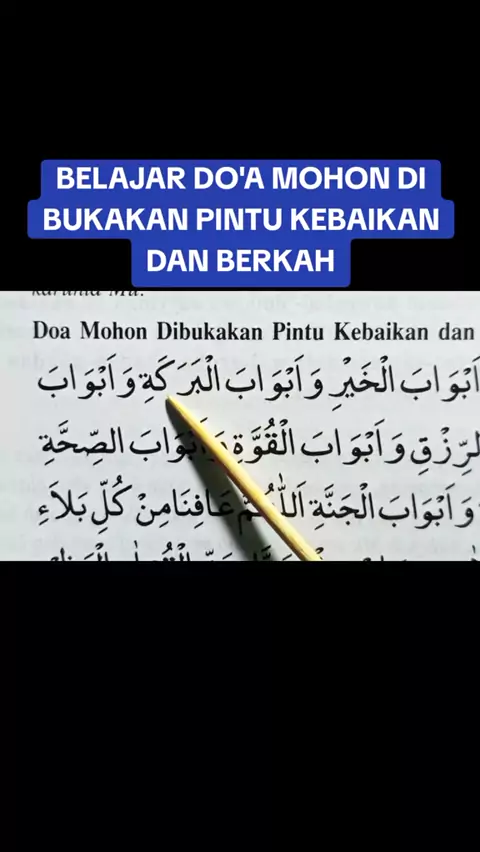 BELAJAR DO'A MOHON DI
BUKAKAN PINTU KEBAIKAN
DAN BERKAH
karunia Mu.
Doa Mohon Dibukakan Pintu Kebaikan dan
اَبْوَابَ الْخَيْرِ وَاَبْوَابَ الْبَرَكَةِ وَاَبْوَابَ
الرِّزْقِ وَاَبْوَابَ الْقُوَّةِ وَاَبْوَابَ الصِّحَّةِ
وَاَبْوَابَ الْجَنَّةِ اَللّٰهُمَّ عَافِنَا مِنْ كُلِّ بَلَاءِ